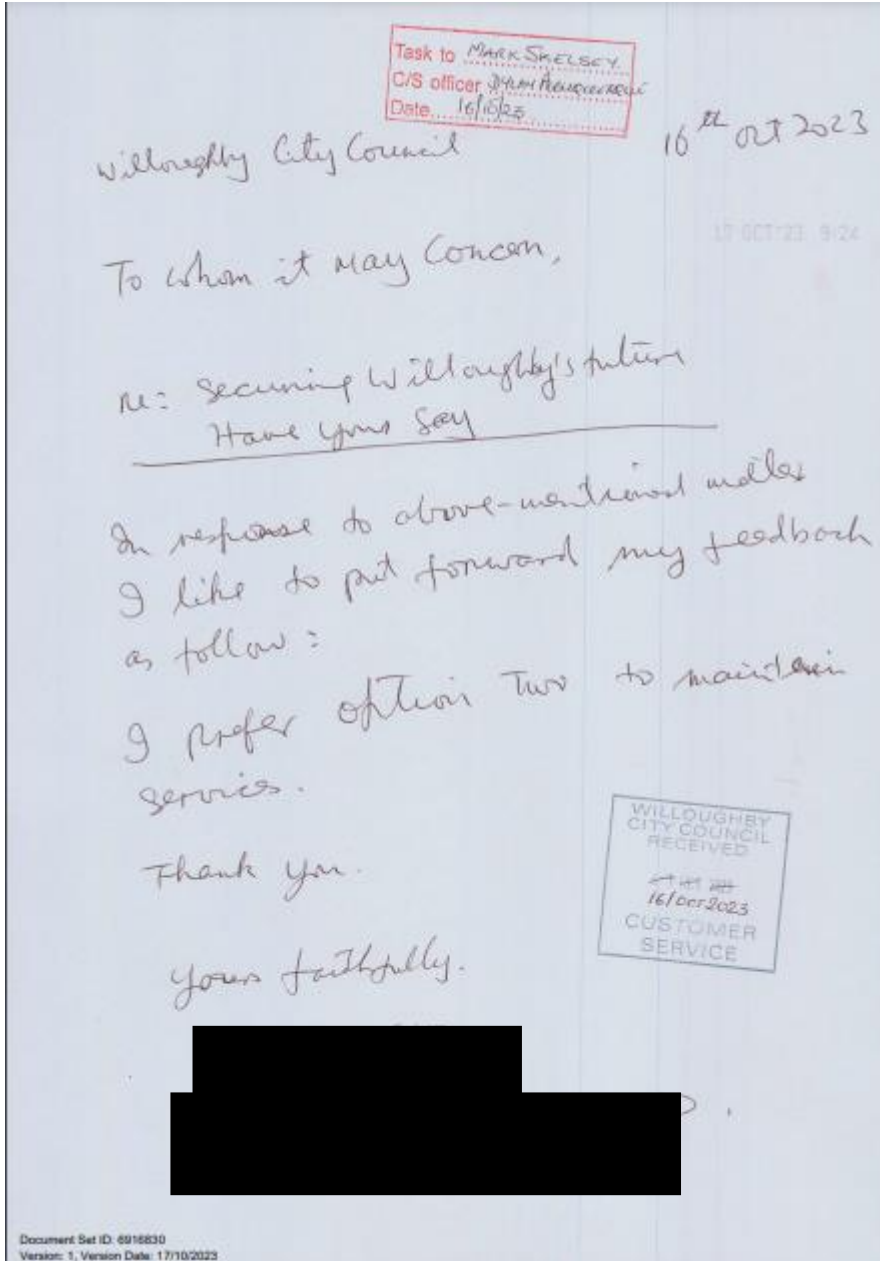 Task to MARK SKELSEY
C/S officer DYLAN ALBUQUERQUE
Date 16/10/23
16th Oct 2023
Willoughby City Council
17 OCT '23 9:24
To whom it May Concern,
Re: Securing Willoughby's future
Have your Say
In response to above-mentioned matter
I like to put forward my feedback
as follow:
I prefer option Two to maintain
services.
Thank you.
WILLOUGHBY
CITY COUNCIL
RECEIVED
16/OCT 2023
CUSTOMER
SERVICE
Yours faithfully.
Document Set ID: 6916830
Version: 1, Version Date: 17/10/2023